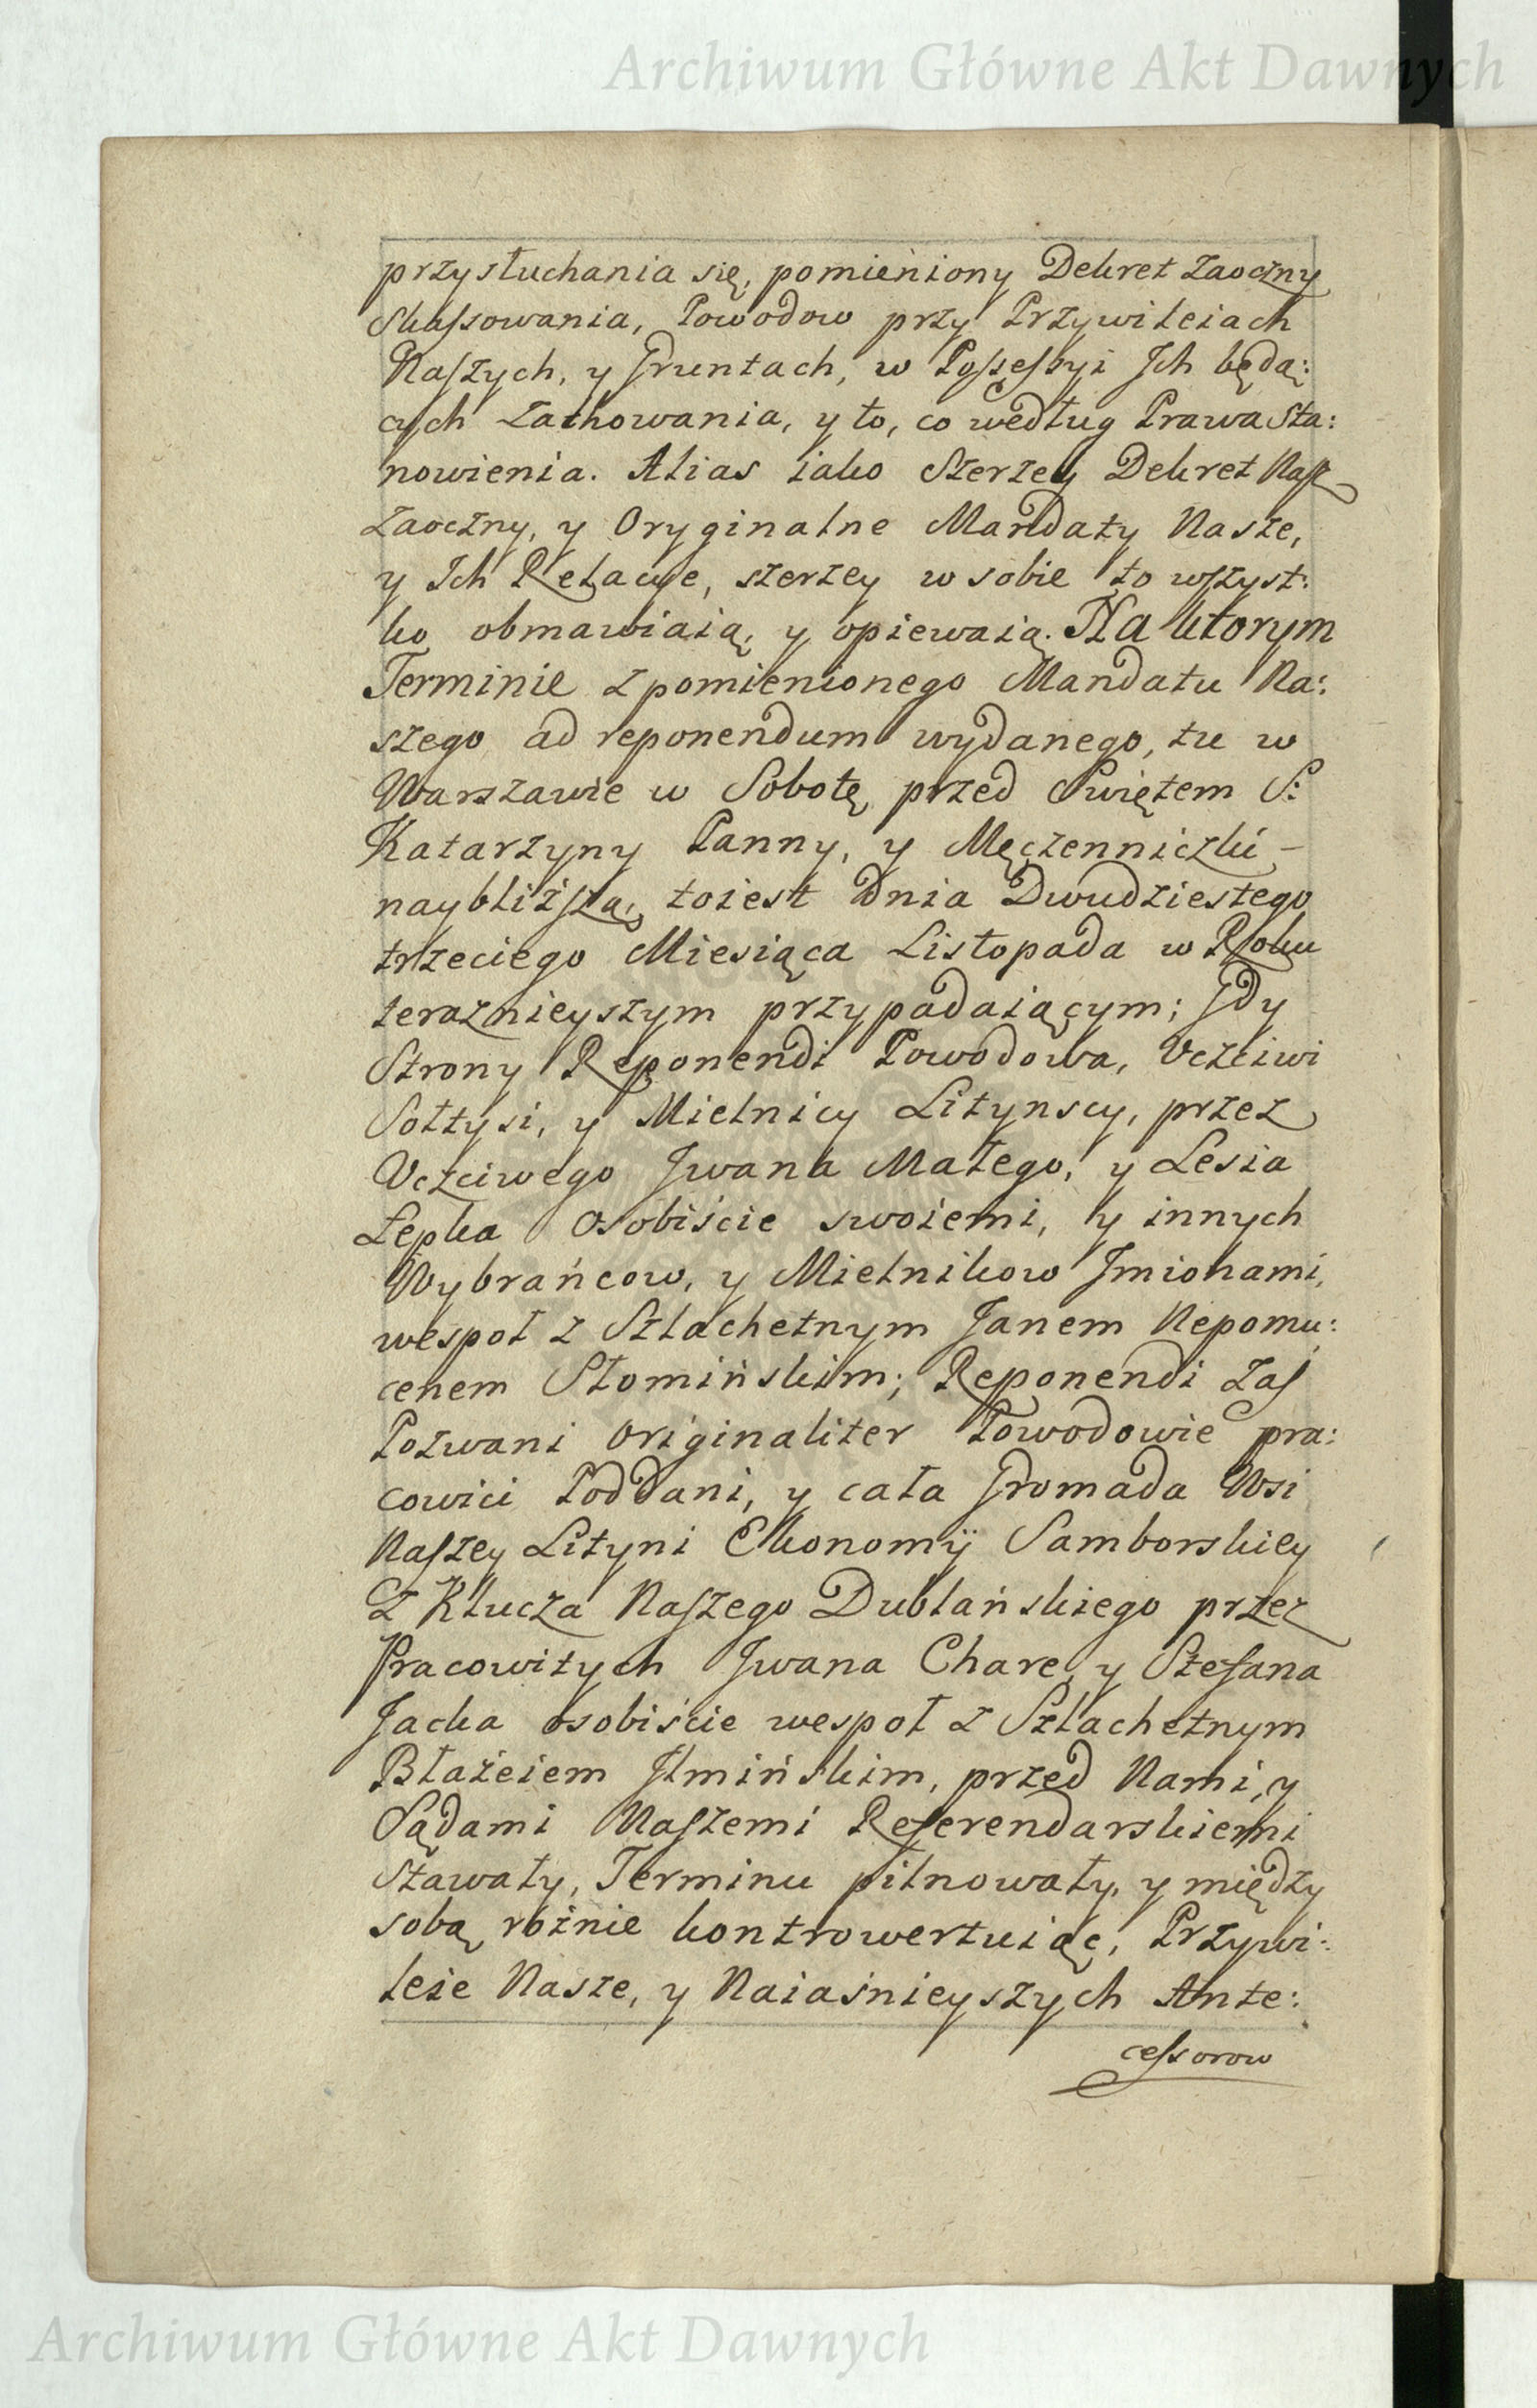 Archiwum Główne Akt Dawnych
przysłuchania się, pomieniony Dekret Zaoczny
Skassowania, Powodow przy Przywileiach
Naszych, y Gruntach, w Possessyi Ich będą:
cych Zachowania, y to, co według Prawa Sta:
nowienia. Alias iako Szerzey Dekret Nasz
Zaoczny, y Oryginalne Mandaty Nasze,
y Ich Relacye, szerzey w sobie to wszyst:
ko obmawiaią, y opiewaią. Na ktorym
Terminie z pomienionego Mandatu Na:
szego ad reponendum wydanego, tu w
Warszawie w Sobotę przed Swiętem S:
Katarzyny Panny, y Męczenniczki –
naybliższą, toiest Dnia Dwudziestego
trzeciego Miesiąca Listopada w Roku
teraznieyszym przypadaiącym; Gdy
Strony Reponendi Powodowa, Vczciwi
Sołtysi, y Mielnicy Litynscy, przez
Vczciwego Iwana Małego, y Lesia
Łepka osobiście swoiemi, y innych
Wybrańcow, y Mielnikow Imionami,
wespoł z Szlachetnym Janem Nepomu:
cenem Słomińskim; Reponendi zaś
Pozwani originaliter Powodowie pra:
cowici Poddani, y cała Gromada Wsi
Naszey Lityni Ekonomÿ Samborskiey
z Klucza Naszego Dublańskiego przez
Pracowitych Iwana Charę, y Stefana
Jacka osobiście wespoł z Szlachetnym
Błażeiem Ilmińskim, przed Nami, y
Sądami Naszemi Referendarskiemi
Stawały, Terminu pilnowały, y między
sobą rożnie kontrowertuiąc, Przywi:
leie Nasze, y Naiaśnieyszych Ante:
cessorow
Archiwum Główne Akt Dawnych